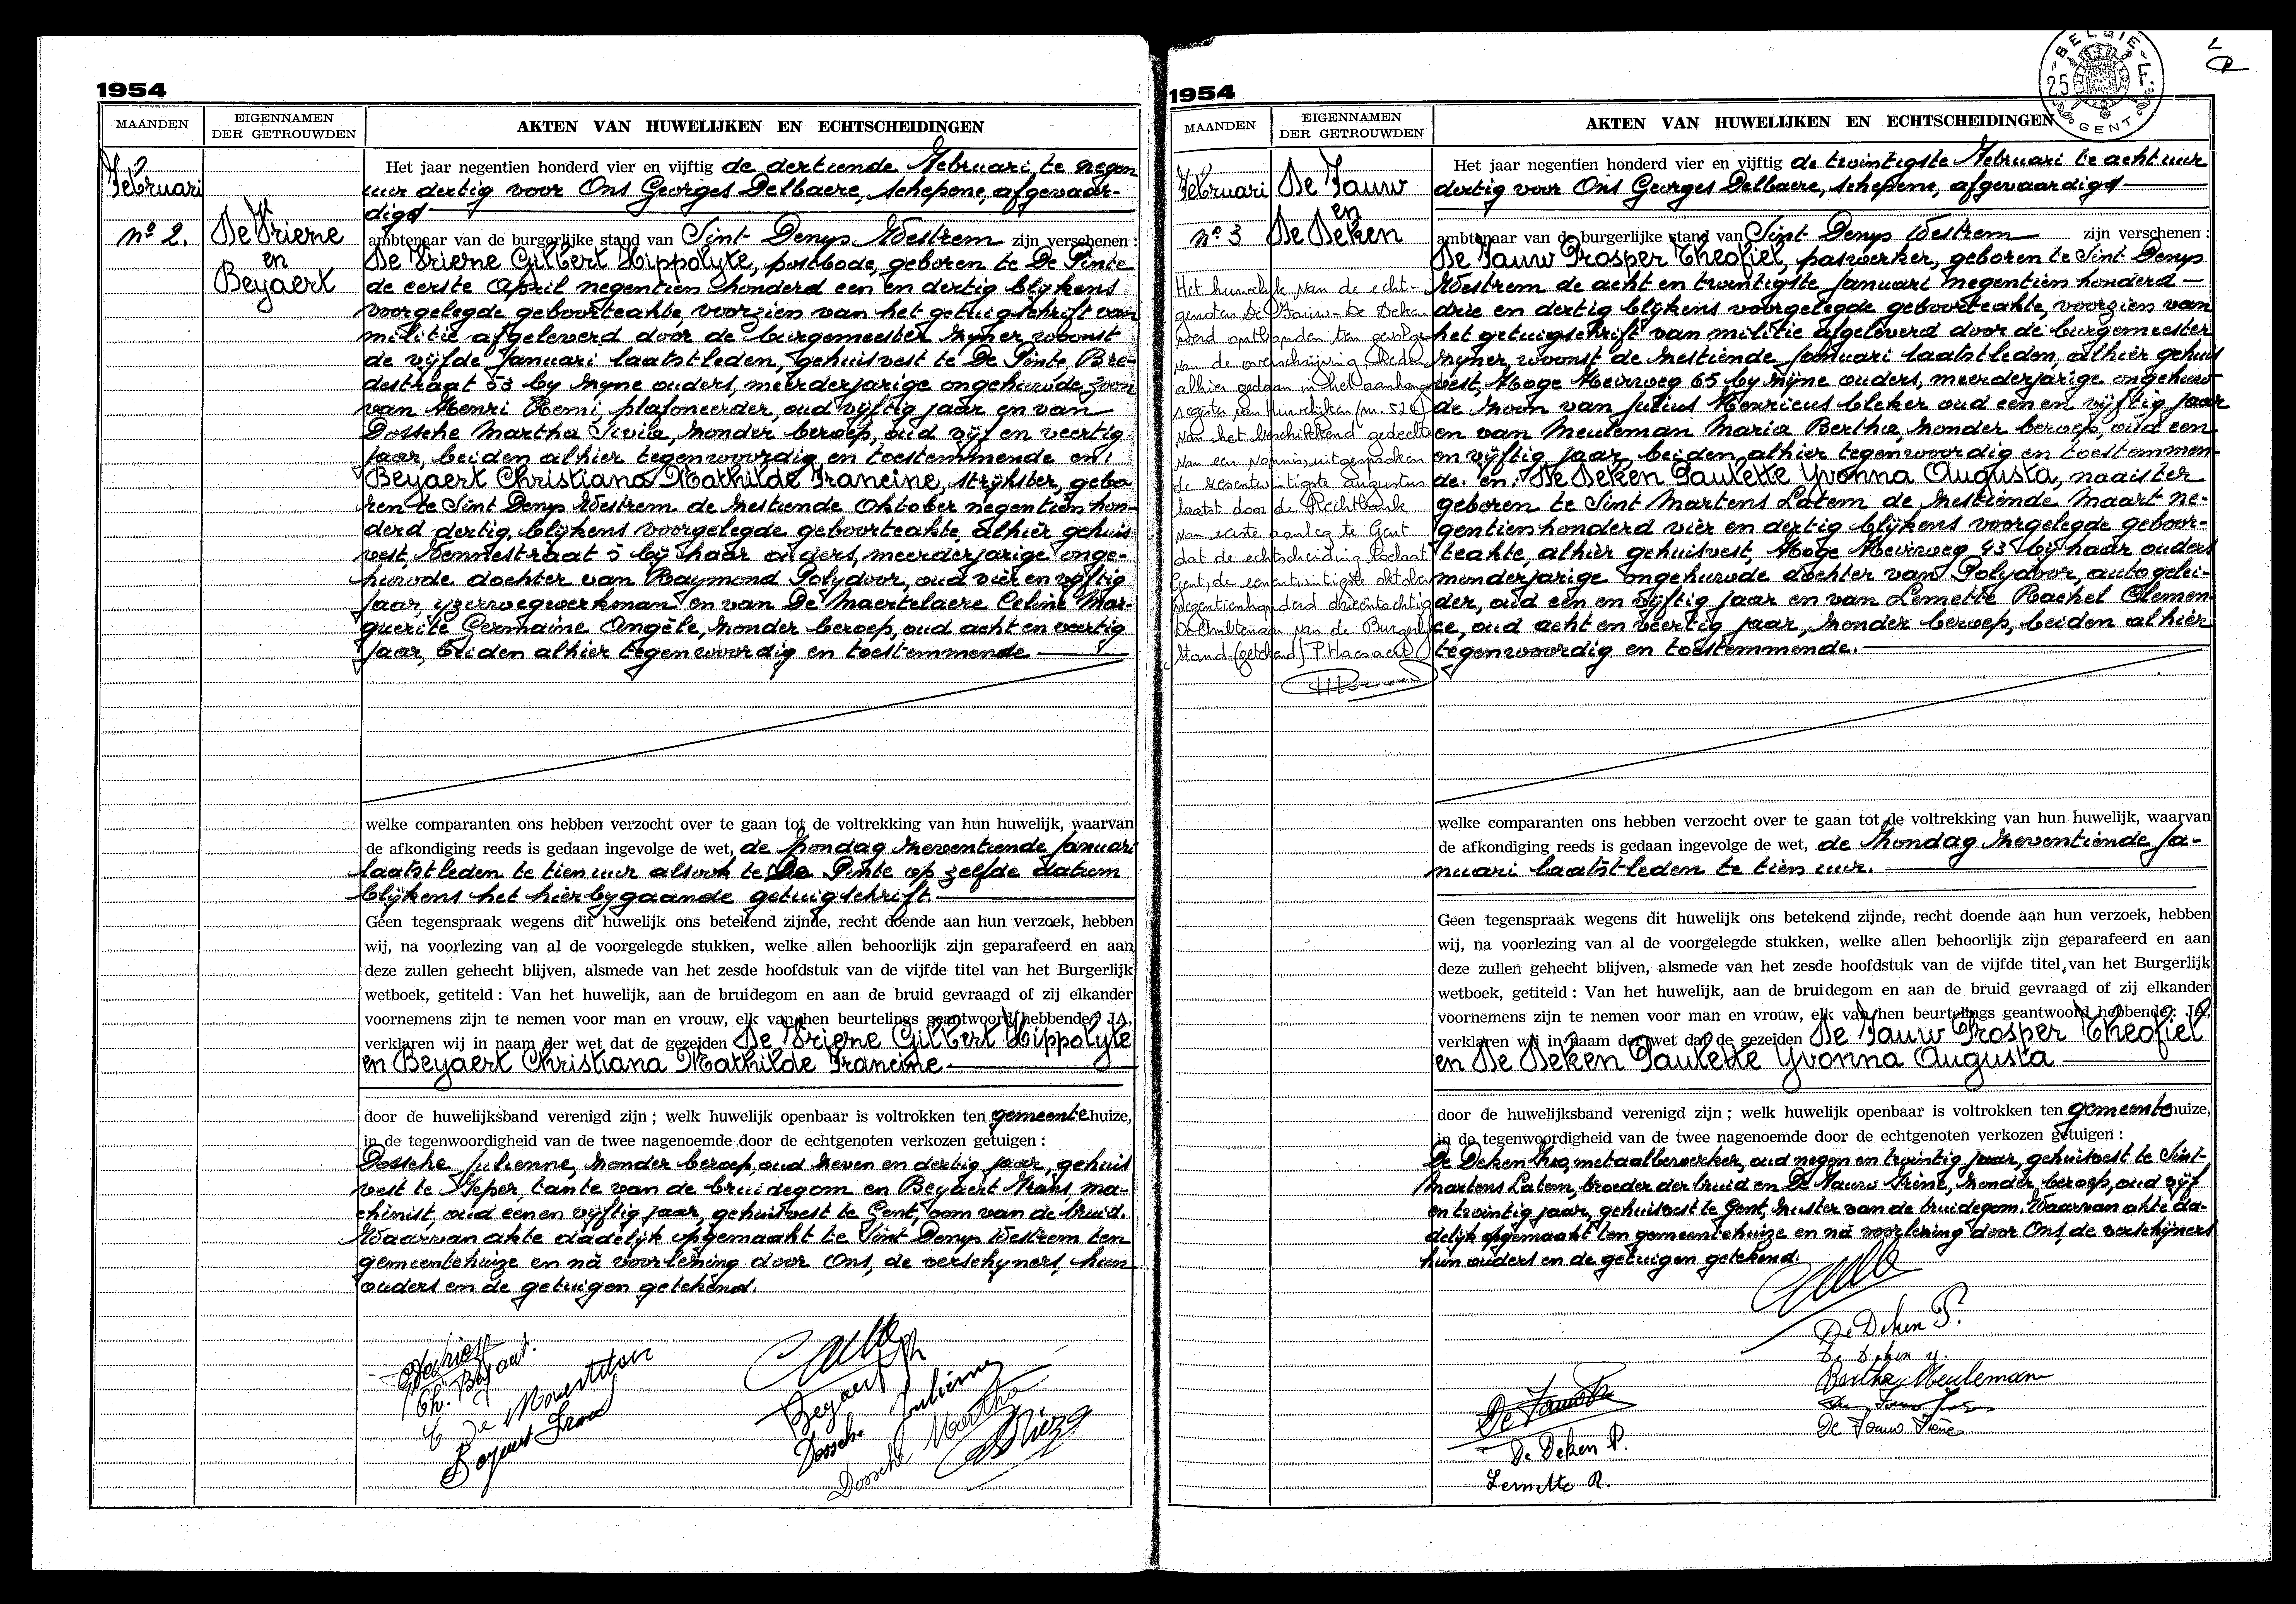 1954
MAANDEN
EIGENNAMEN
DER GETROUWDEN
AKTEN VAN HUWELIJKEN EN ECHTSCHEIDINGEN
Februari
nº 2.
De Vriene
en
Beyaert
Het jaar negentien honderd vier en vijftig de dertiende Februari te negen
uur dertig voor Ons Georges Delbaere, schepene, afgevaar-
digd
ambtenaar van de burgerlijke stand van Sint Denys Westrem zijn verschenen :
De Vriene Gilbert Hippolyte, postbode, geboren te De Pinte
de eerste April negentien honderd een en dertig blijkens
voorgelegde geboorteakte, voorzien van het getuigschrift van
militie afgeleverd door de burgemeester zyner woonst
de vijfde Januari laatstleden, gehuisvest te De Pinte, Bre-
destraat 53 by zyne ouders, meerderjarige ongehuwde zoon
van Henri Remi, plafoneerder, oud vijftig jaar en van
Dossche Martha Sivia, zonder beroep, oud vijf en veertig
jaar, beiden alhier tegenwoordig en toestemmende en:
Beyaert Christiana Mathilde Francine, strijkster, gebo-
ren te Sint Denys Westrem de zestiende Oktober negentien hon-
derd dertig, blijkens voorgelegde geboorteakte, alhier gehuis
vest, Lennestraat 5 bij haar ouders, meerderjarige onge-
huwde dochter van Raymond Polydoor, oud vier en vijftig
jaar, yzerwegwerkman en van De Maertelaere Celine Mar-
guerite Germaine Angèle, zonder beroep, oud acht en veertig
jaar, beiden alhier tegenwoordig en toestemmende
welke comparanten ons hebben verzocht over te gaan tot de voltrekking van hun huwelijk, waarvan
de afkondiging reeds is gedaan ingevolge de wet, de Zondag zeventiende Januari
laatstleden te tien uur alsook te De Pinte op zelfde datum
blijkens het hierbygaande getuigschrift.
Geen tegenspraak wegens dit huwelijk ons betekend zijnde, recht doende aan hun verzoek, hebben
wij, na voorlezing van al de voorgelegde stukken, welke allen behoorlijk zijn geparafeerd en aan
deze zullen gehecht blijven, alsmede van het zesde hoofdstuk van de vijfde titel van het Burgerlijk
wetboek, getiteld : Van het huwelijk, aan de bruidegom en aan de bruid gevraagd of zij elkander
voornemens zijn te nemen voor man en vrouw, elk van hen beurtelings geantwoord hebbende : JA,
verklaren wij in naam der wet dat de gezeiden De Vriene Gilbert Hippolyte
en Beyaert Christiana Mathilde Francine
door de huwelijksband verenigd zijn ; welk huwelijk openbaar is voltrokken ten gemeentehuize,
in de tegenwoordigheid van de twee nagenoemde door de echtgenoten verkozen getuigen :
Dossche Julienne, zonder beroep, oud zeven en dertig jaar, gehuis
vest te Ieper, tante van de bruidegom en Beyaert Frans, ma-
chinist, oud een en vijftig jaar, gehuisvest te Gent, oom van de bruid.
Waarvan akte dadelijk opgemaakt te Sint Denys Westrem ten
gemeentehuize en nà voorlezing door Ons, de verschyners, hun
ouders en de getuigen getekend.
Ch. Beyaert.
Beyaert Frans
Beyaert
Dossche Julienne
Dossche Martha
1954
BELGIE
25 F.
GENT
2
MAANDEN
EIGENNAMEN
DER GETROUWDEN
AKTEN VAN HUWELIJKEN EN ECHTSCHEIDINGEN
Februari
nº 3
De Fauw
en
De Deken
Het huwelijk van de echt-
genoten De Fauw - De Deken
werd ontbonden ten gevolge
van de overschrijving, heden
alhier gedaan in het aanhangs
register van huwelijken (nr. 526)
van het beschikkend gedeelte
van een vonnis, uitgesproken
de zesentwintigste augustus
laatst door de Rechtbank
van eerste aanleg te Gent
dat de echtscheiding toelaat
Gent, de eenentwintigste oktober
negentienhonderd drieëntachtig
De Ambtenaar van de Burgerl.
Stand. (getekend)
Het jaar negentien honderd vier en vijftig de twintigste Februari te acht uur
dertig voor Ons Georges Delbaere, schepene, afgevaardigd
ambtenaar van de burgerlijke stand van Sint Denys Westrem zijn verschenen :
De Fauw Prosper Theofiel, paswerker, geboren te Sint Denys
Westrem de acht en twintigste Januari negentien honderd
drie en dertig blijkens voorgelegde geboorteakte, voorzien van
het getuigschrift van militie afgeleverd door de burgemeester
zyner woonst de zestiende Januari laatstleden, alhier gehuis
vest, Hoge Heirweg 65 by zijne ouders, meerderjarige ongehuw-
de zoon van Julius Henricus bleker oud een en vijftig jaar
en van Meuleman Maria Bertha, zonder beroep, oud een
en vijftig jaar, beiden alhier tegenwoordig en toestemmen-
de. en: De Deken Paulette Yvonna Augusta, naaister
geboren te Sint Martens Latem de zestiende Maart ne-
gentienhonderd vier en dertig blijkens voorgelegde geboor-
teakte, alhier gehuisvest, Hoge Heirweg 43 bij haar ouders
minderjarige ongehuwde dochter van Polydoor, autogelei-
der, oud een en vijftig jaar en van Lemette Rachel Clemen-
ce, oud acht en veertig jaar, zonder beroep, beiden alhier
tegenwoordig en toestemmende.
welke comparanten ons hebben verzocht over te gaan tot de voltrekking van hun huwelijk, waarvan
de afkondiging reeds is gedaan ingevolge de wet, de Zondag zeventiende Ja-
nuari laatstleden te tien uur.
Geen tegenspraak wegens dit huwelijk ons betekend zijnde, recht doende aan hun verzoek, hebben
wij, na voorlezing van al de voorgelegde stukken, welke allen behoorlijk zijn geparafeerd en aan
deze zullen gehecht blijven, alsmede van het zesde hoofdstuk van de vijfde titel van het Burgerlijk
wetboek, getiteld : Van het huwelijk, aan de bruidegom en aan de bruid gevraagd of zij elkander
voornemens zijn te nemen voor man en vrouw, elk van hen beurtelings geantwoord hebbende : JA,
verklaren wij in naam der wet dat de gezeiden De Fauw Prosper Theofiel
en De Deken Paulette Yvonna Augusta
door de huwelijksband verenigd zijn ; welk huwelijk openbaar is voltrokken ten gemeentehuize,
in de tegenwoordigheid van de twee nagenoemde door de echtgenoten verkozen getuigen :
De Deken metaalbewerker, oud negen en twintig jaar, gehuisvest te Sint-
Martens Latem, broeder der bruid en De Fauw Irène, zonder beroep, oud vijf
en twintig jaar, gehuisvest te Gent, zuster van de bruidegom. Waarvan akte da-
delijk opgemaakt ten gemeentehuize en nà voorlezing door Ons, de verschijners
hun ouders en de getuigen getekend.
De Deken P.
De Deken y.
Bertha Meuleman
De Fauw Irène
De Fauw
De Deken P.
Lemette R.